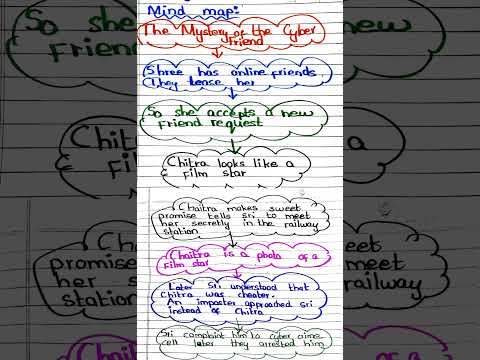 Mind map:
The Mystery of the Cyber
Friend
Shree has online friends
They tease her
So she accepts a new
Friend request
Chitra looks like a
Film star
Chaitra makes sweet
promise tells sri to meet
her secretly in the railway
station
Chaitra is a photo of a
Film star
Later Sri understood that
Chitra was cheater.
An imposter approached Sri
instead of Chitra
Sri complaint him to cyber crime
cell later they arrested him